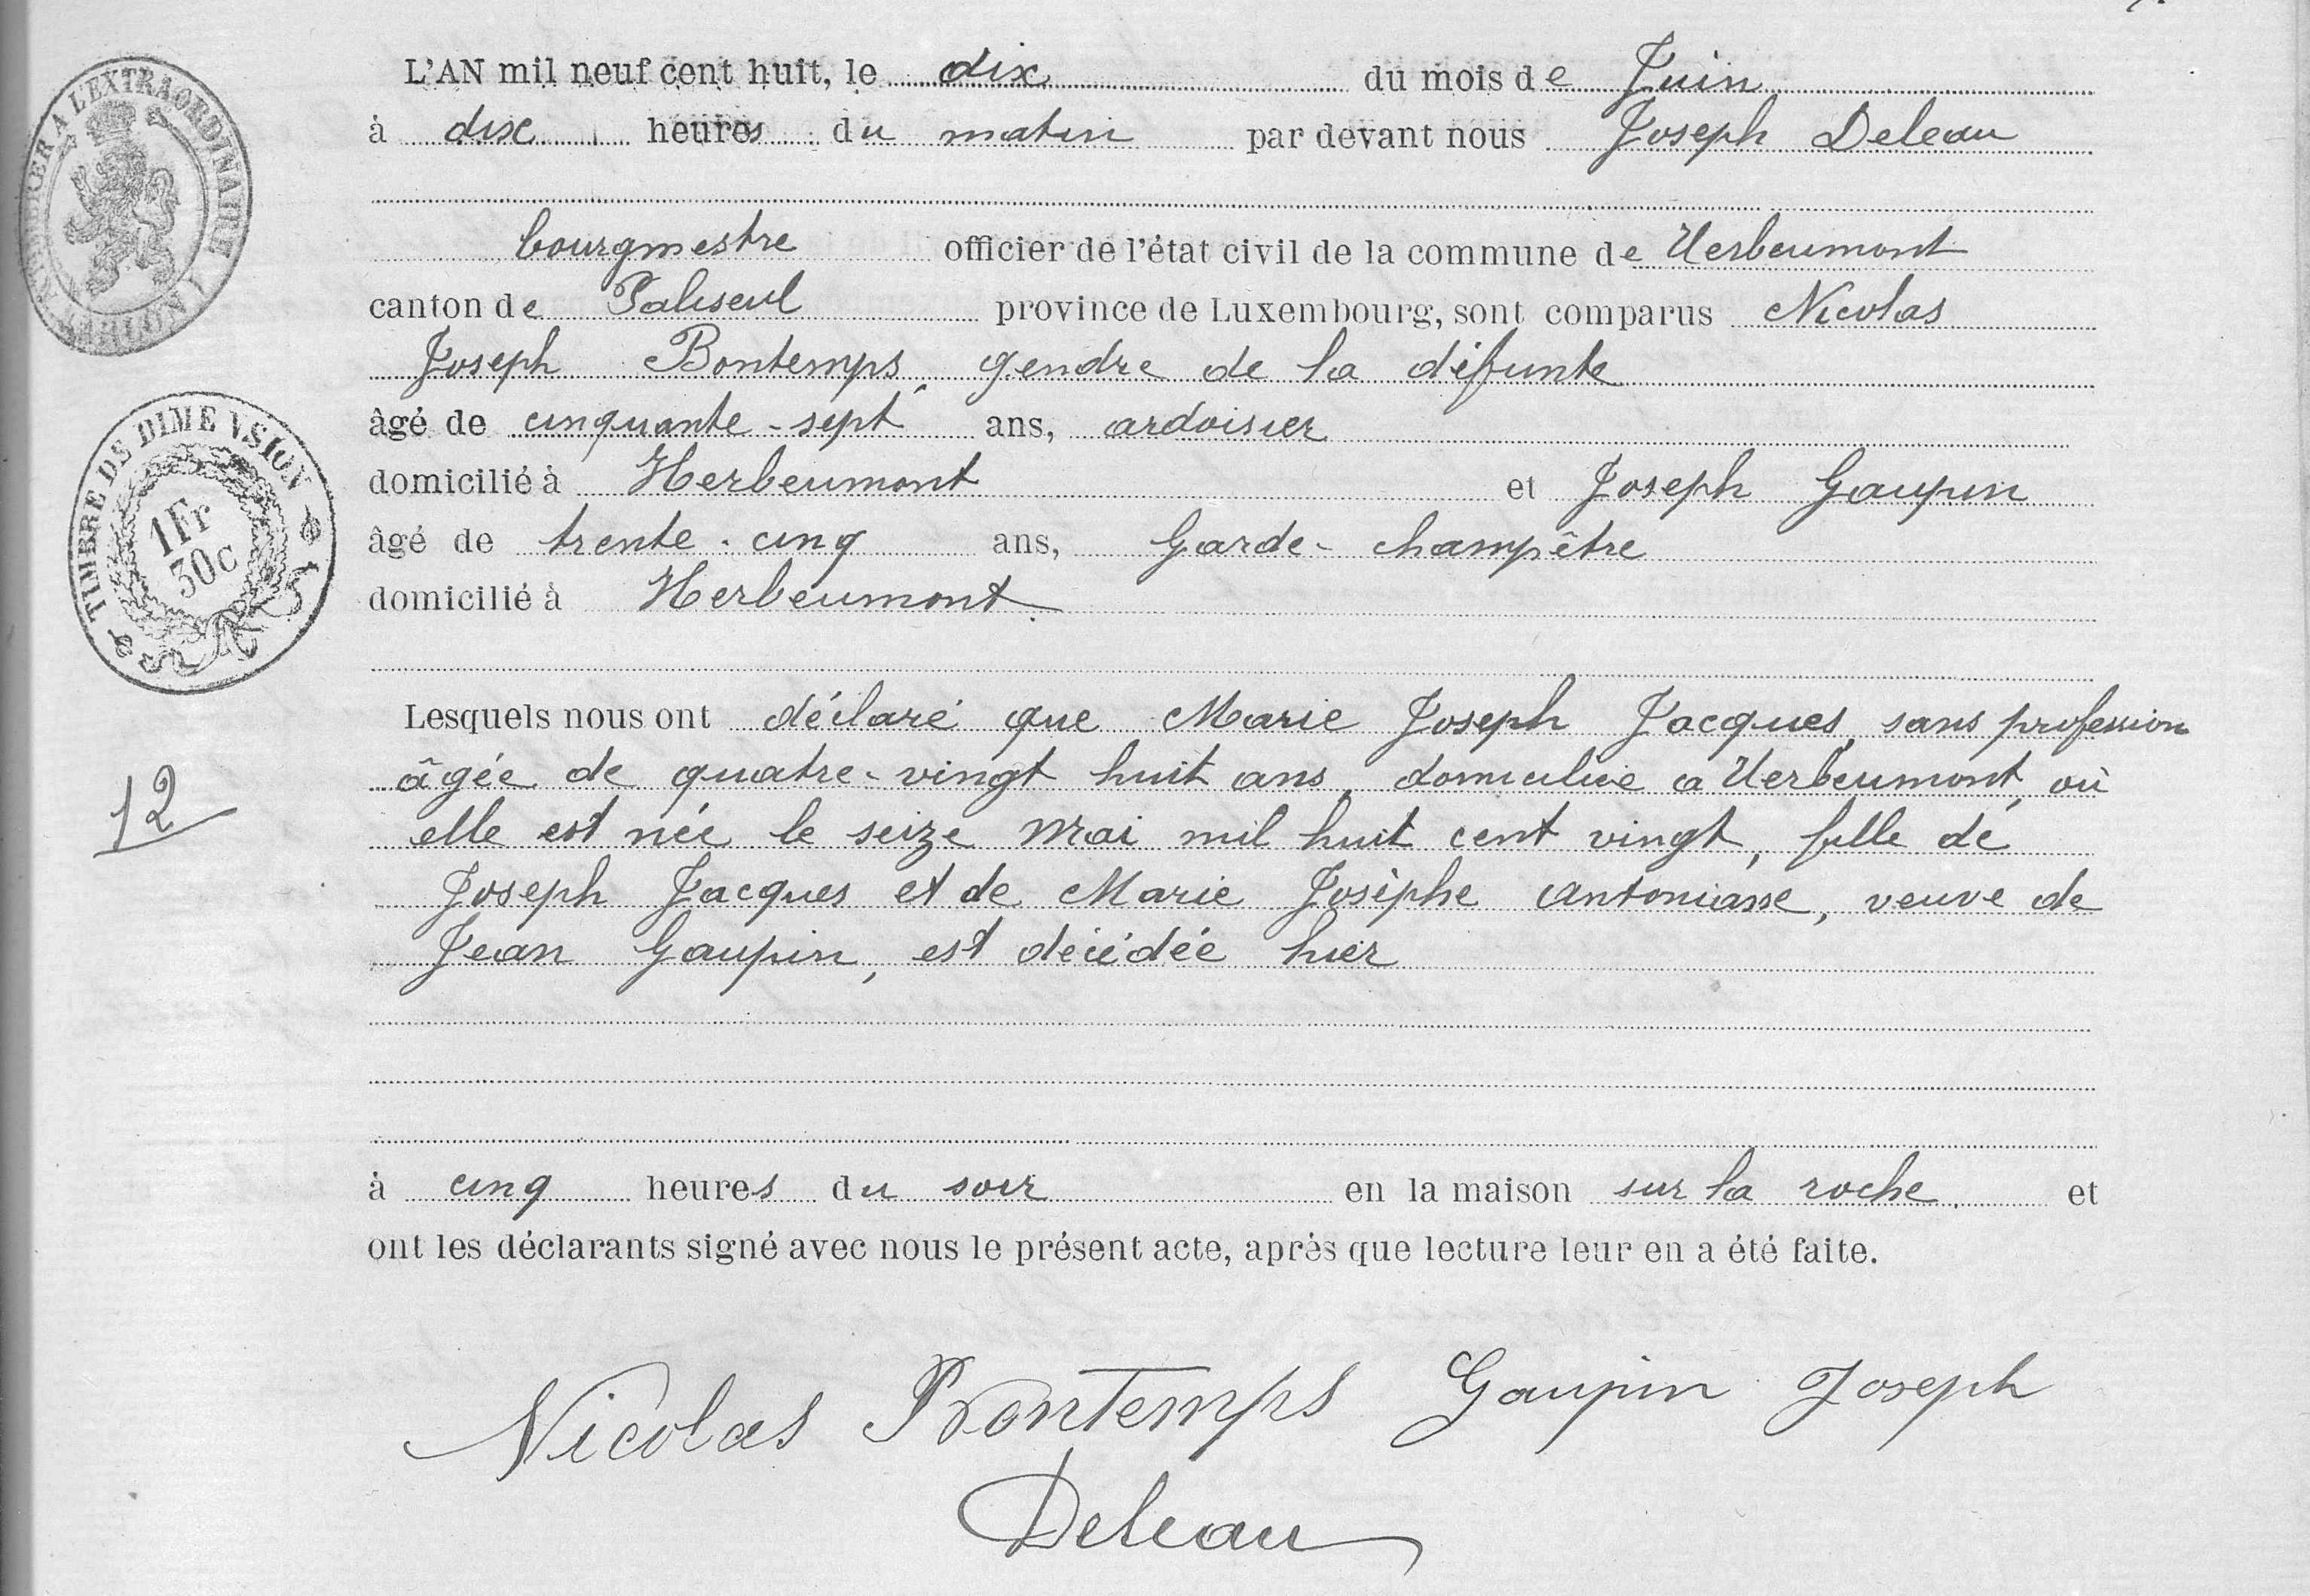 TIMBRER A L'EXTRAORDINAIRE
ARLON
L'AN mil neuf cent huit, le dix du mois de Juin
à dix heures du matin par devant nous Joseph Deleau
bourgmestre officier de l'état civil de la commune de Herbeumont
canton de Paliseul province de Luxembourg, sont comparus Nicolas
Joseph Bontemps, gendre de la défunte
âgé de cinquante-sept ans, ardoisier
TIMBRE DE DIMENSION
1Fr
30c
domicilié à Herbeumont et Joseph Gaupin
âgé de trente-cinq ans, Garde-champêtre
domicilié à Herbeumont.
Lesquels nous ont déclaré que Marie Joseph Jacques, sans profession
12
âgée de quatre-vingt huit ans, domiciliée a Herbeumont, où
elle est née le seize Mai mil huit cent vingt, fille de
Joseph Jacques et de Marie Josèphe Antoniasse, veuve de
Jean Gaupin, est décédée hier
à cinq heures du soir en la maison sur la roche, et
ont les déclarants signé avec nous le présent acte, après que lecture leur en a été faite.
Nicolas Bontemps Gaupin Joseph
Deleau